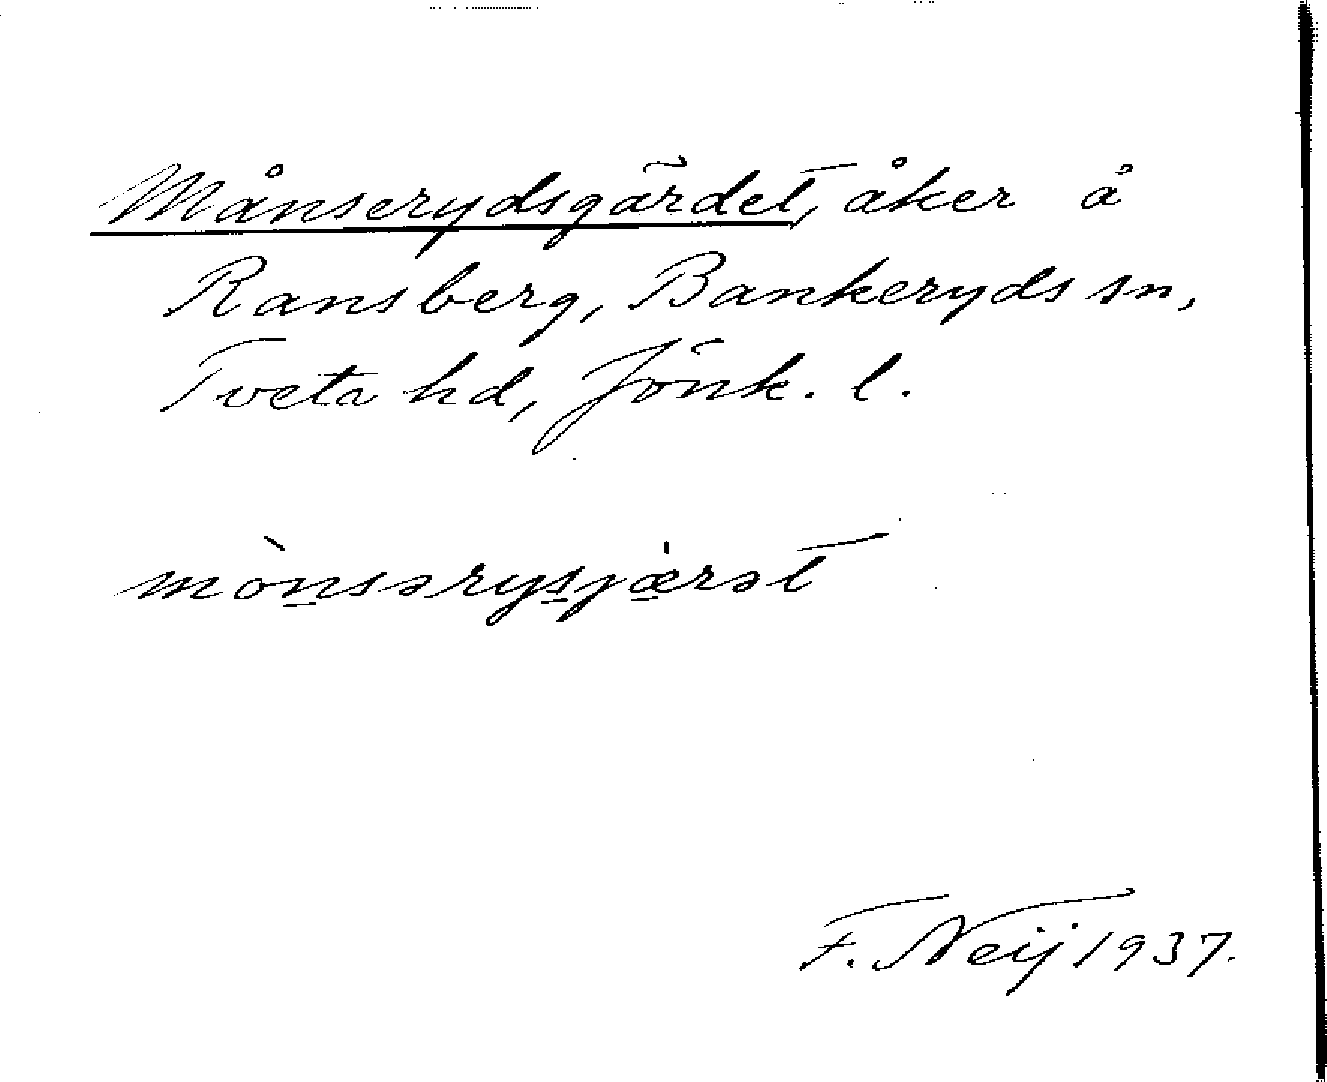 Månserydsgärdet, åker å
Ransberg, Bankeryds sn,
Tveta hd, Jönk. l.
mònsərysjærət
F. Neij 1937.